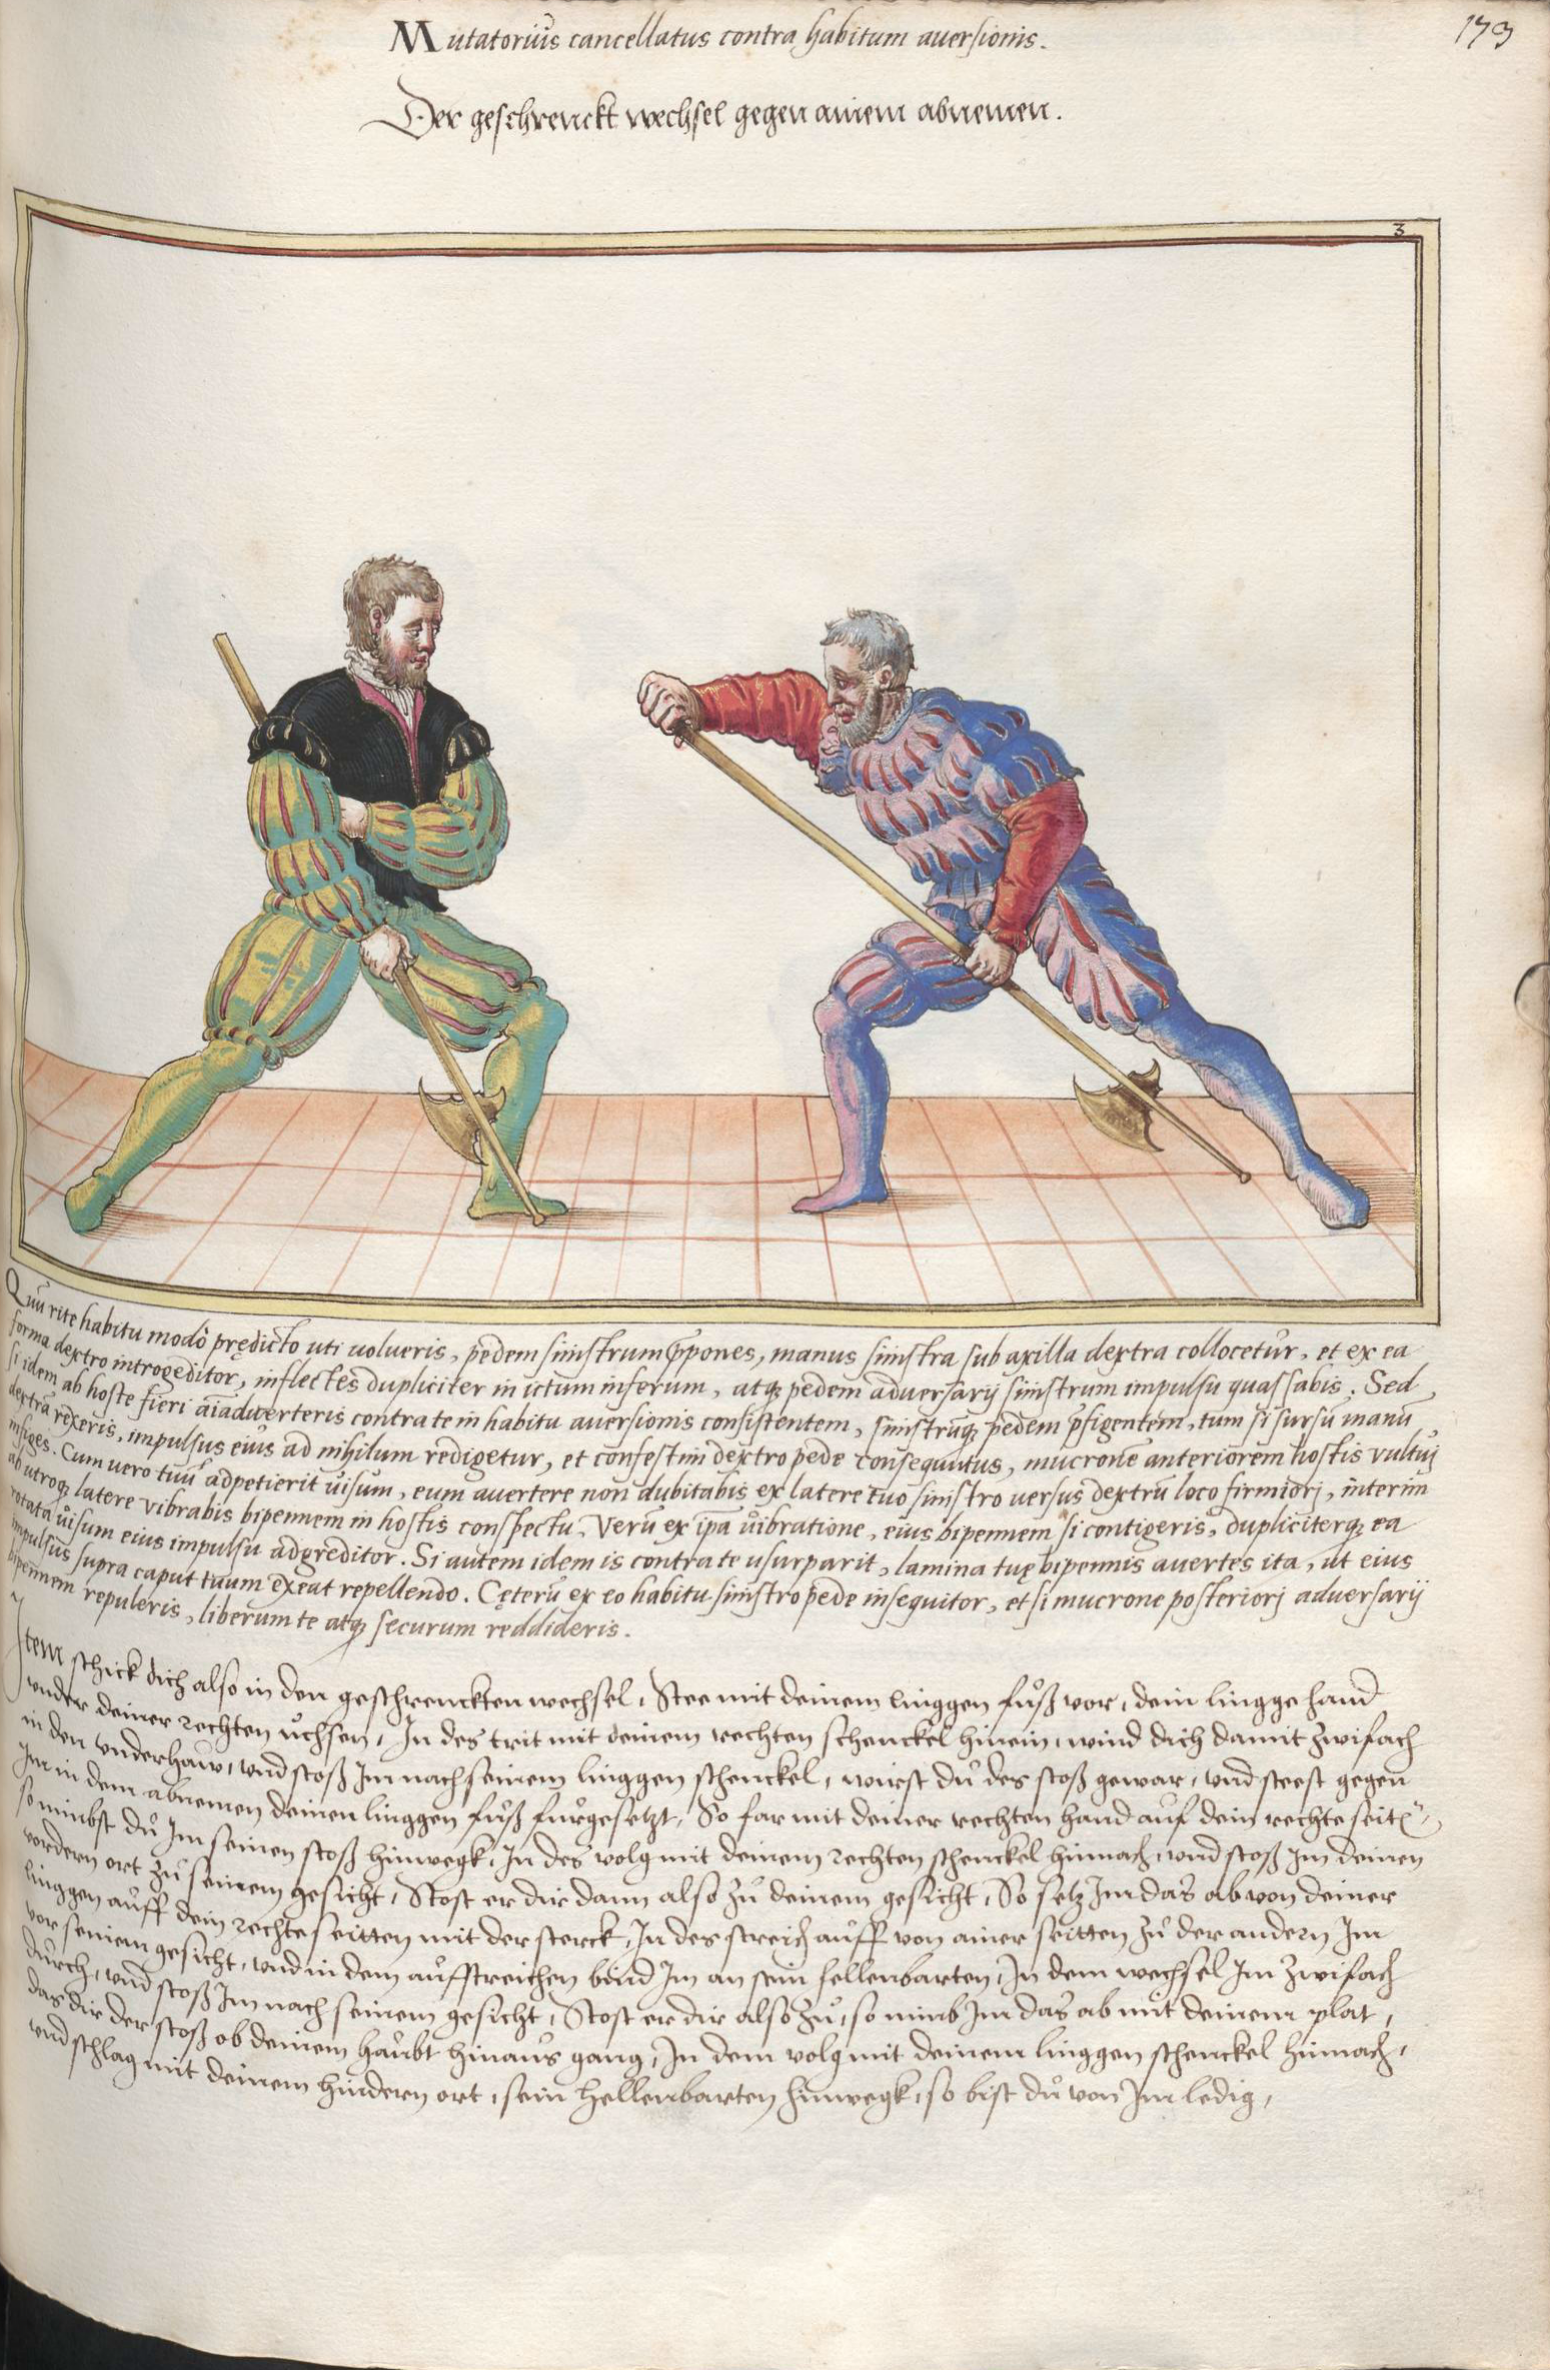 173
Mutatorius cancellatus contra habitum auersionis.
Der geschrenckt wechsel gegen ainem abnemen.
3
Quū rite habitu modò prędicto uti uolueris, pedem sinistrum p̄pones, manus sinistra sub axilla dextra collocetur, et ex ea
forma dextro introgeditor, inflectes dupliciter in ictum inferum, atq; pedem aduersarij sinistrum impulsu quassabis. Sed,
si idem ab hoste fieri aīaduerteris contra te in habitu auersionis consistentem, sinistrūq; pedem p̄figentem, tum si sursū manū
dextrā rexeris, impulsus eius ad nihilum redigetur, et confestim dextro pede consequutus, mucronē anteriorem hostis vultuj
infiges. Cum vero tuū adpetierit uisum, eum auertere non dubitabis ex latere tuo sinistro uersus dextrū loco firmiorj, interim
ab utroq; latere vibrabis bipennem in hostis conspectu, Verū ex ipā uibratione, eius bipennem si contigeris, dupliciterq; ea
rotata uisum eius impulsu adgreditor. Si autem idem is contra te usurparit, lamina tuę bipennis auertes ita, ut eius
impulsus supra caput tuum exeat repellendo. Cęterū ex eo habitu sinistro pede insequitor, et si mucrone posteriorj aduersarij
bipennem repuleris, liberum te atq; securum reddideris.
Item schick dich also in den geschrenckten wechsel, Stee mit deinem linggen fuoß vor, dein lingge hand
vnder deiner rechten uchsen, In des trit mit deinem rechten schenckel hinein, wind dich damit zwifach
in den vnderhaw, vnd stoß Im nach seinem linggen schenckel, wirst du des stoß gewar, vnd steest gegen
Im in dem abnemen deinen linggen fuß furgesetzt, So far mit deiner rechten hand auf dein rechte seitē,
so nimbst du Im seinen stoß hinwegk, In des volg mit deinem rechten schenckel hinnach, vnd stoß Im deinen
vordern ort zu seinem gesicht, Stost er dir dann also zu deinem gesicht, So setz Im das ab von deiner
linggen auff dein rechte seitten mit der sterck, In des streich auff von ainer seitten zu der andern Im
vor seinem gesicht, vnd in dem aufstreichen bind Im an sein hellenbarten, In dem wechsel Im zwifach
durch, vnd stoß Im nach seinem gesicht, Stost er dir also zu, so nimb Im das ab mit deinem plat,
das dir der stoß ob deinem haubt hinaus gang, In dem volg mit deinem linggen schenckel hinnach,
vnd schlag mit deinem hindern ort, sein hellenbarten hinwegk, so bist du von Im ledig,